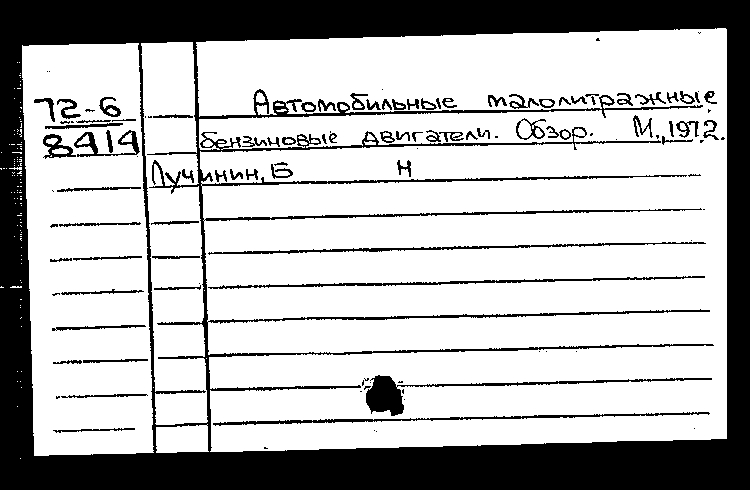 72-6
8414
Автомобильные малолитражные
бензиновые двигатели. Обзор. М.,1972.
Лучинин, Б Н